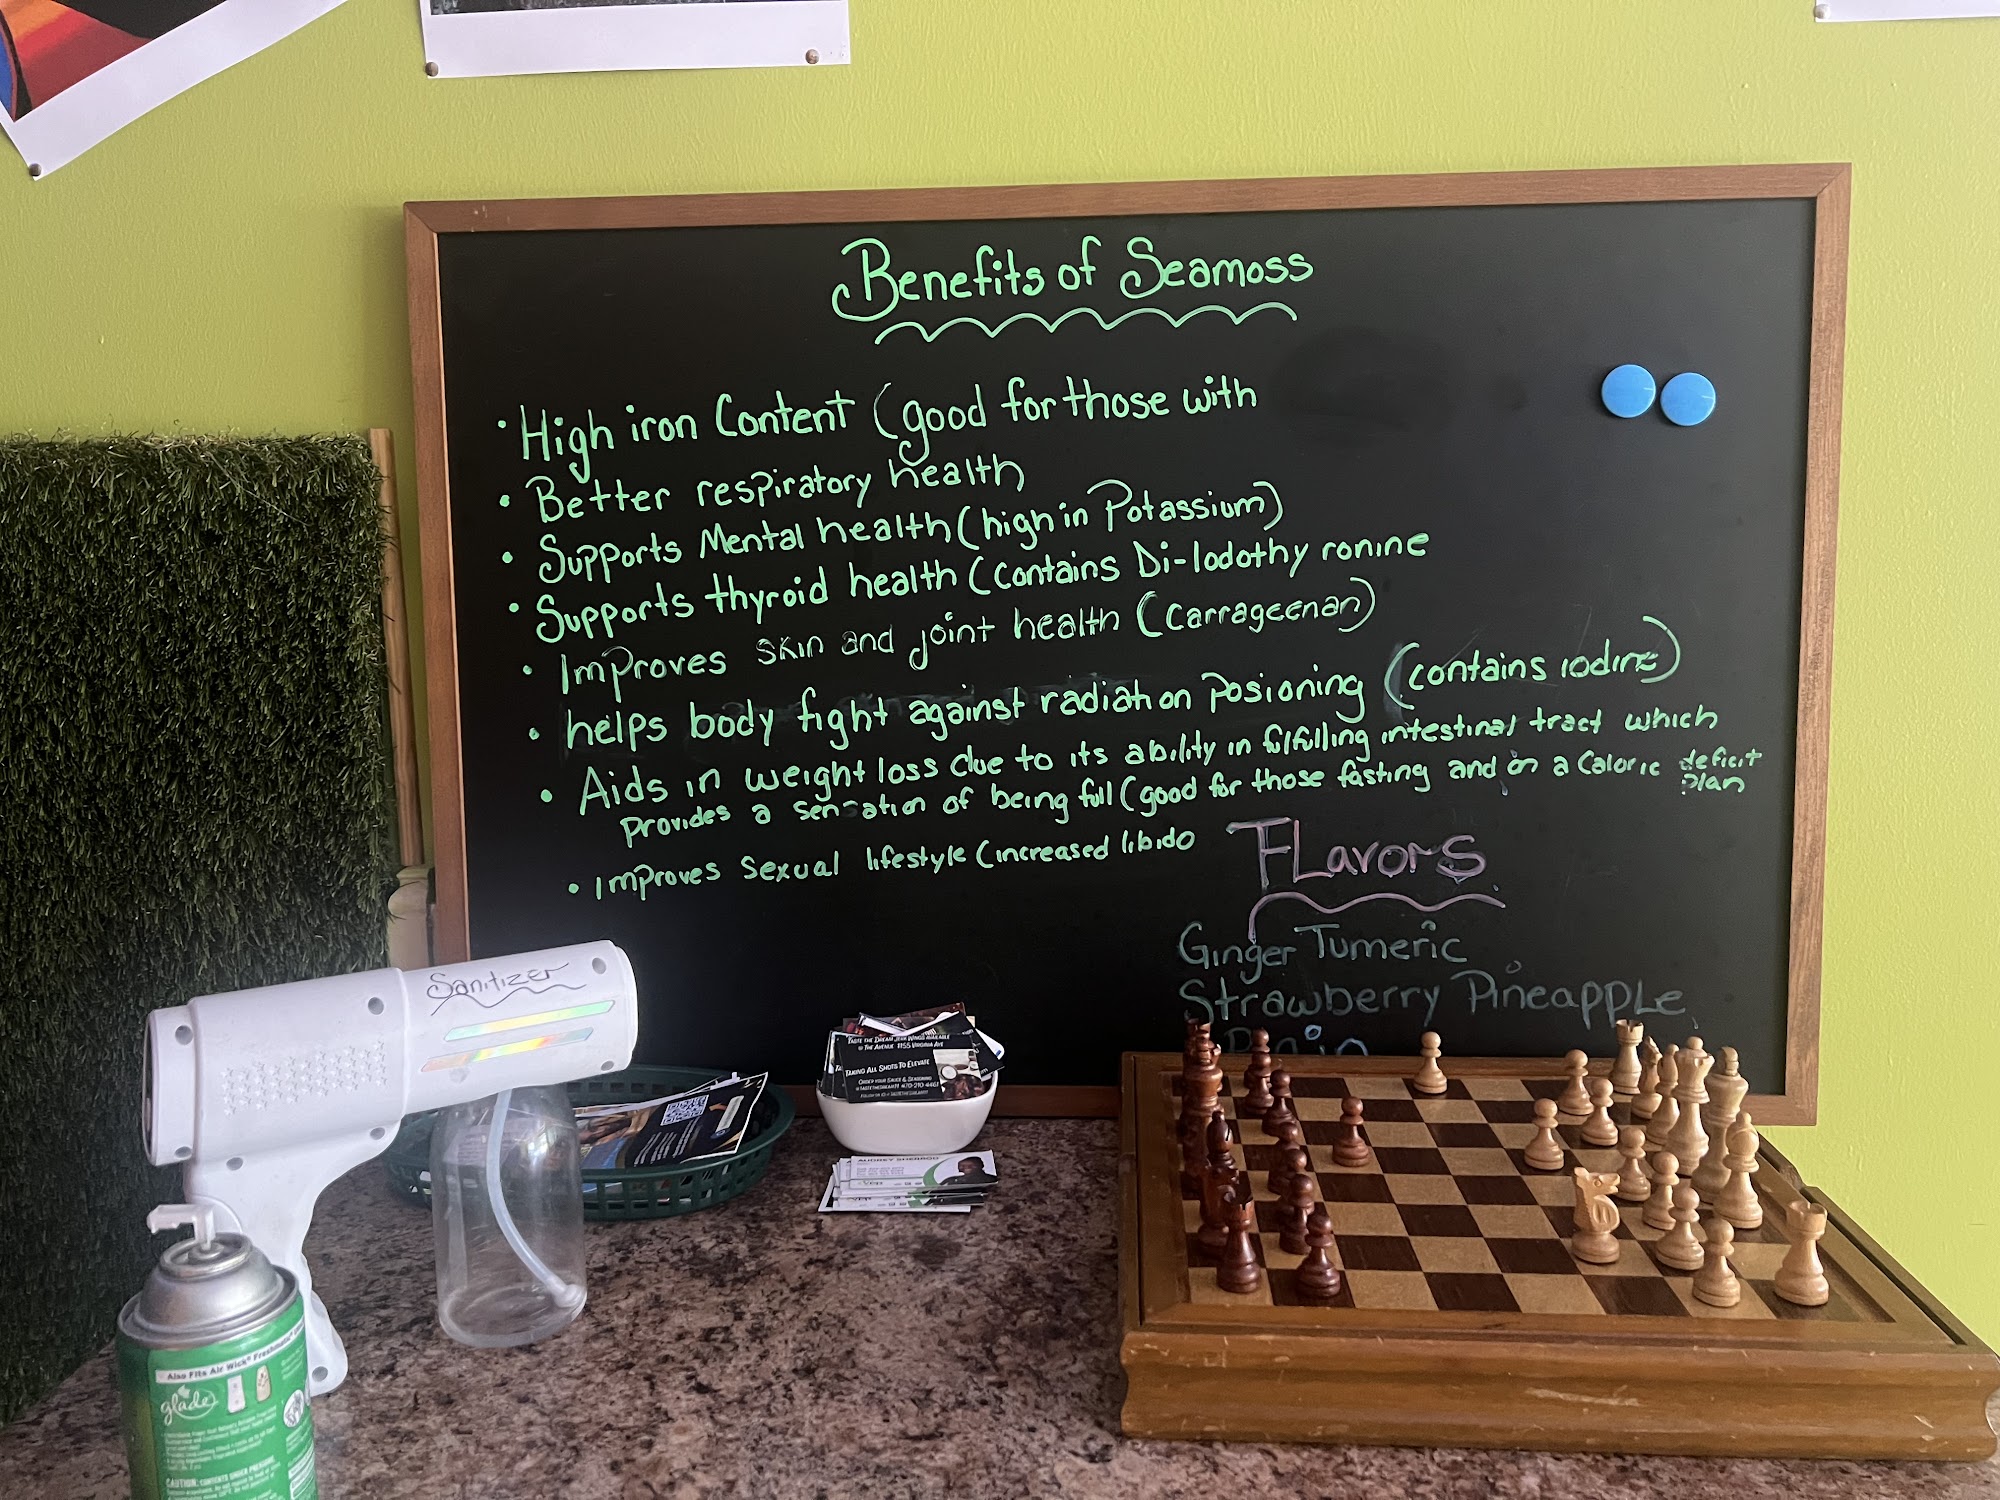 Benefits of Seamoss
• High iron Content (good for those with
• Better respiratory health
• Supports Mental health (high in Potassium)
• Supports thyroid health (contains Di-Iodothy ronine
• Improves skin and joint health (carrageenan)
• helps body fight against radiation Posioning (contains iodine)
• Aids in weight loss due to its ability in fulfulling intestinal tract which
provides a sensation of being full (good for those fasting and on a Caloric deficit
plan
• improves sexual lifestyle (increased libido
FLavors
Ginger Tumeric
Strawberry PineappLe
Sanitizer
TASTE THE DREAM JERK WINGS AVAILABLE
@ THE AVENUE 1155 VIRGINIA AVE
TAKING ALL SHOTS TO ELEVATE
ORDER YOUR SAUCE & SEASONING
470-210-4461
AUDREY SHERROD
Also Fits Air Wick® Freshmatic
glade
CAUTION: